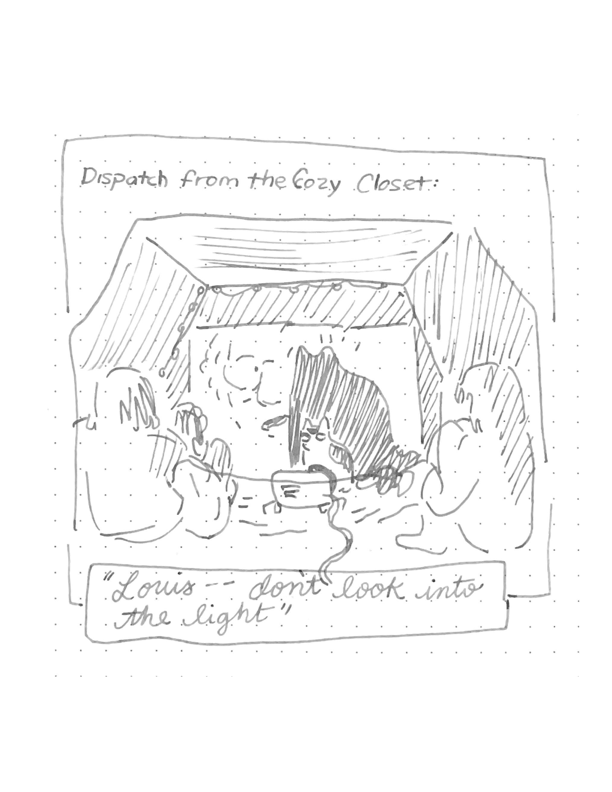 Dispatch from the Cozy Closet:
"Louis -- dont look into
the light"